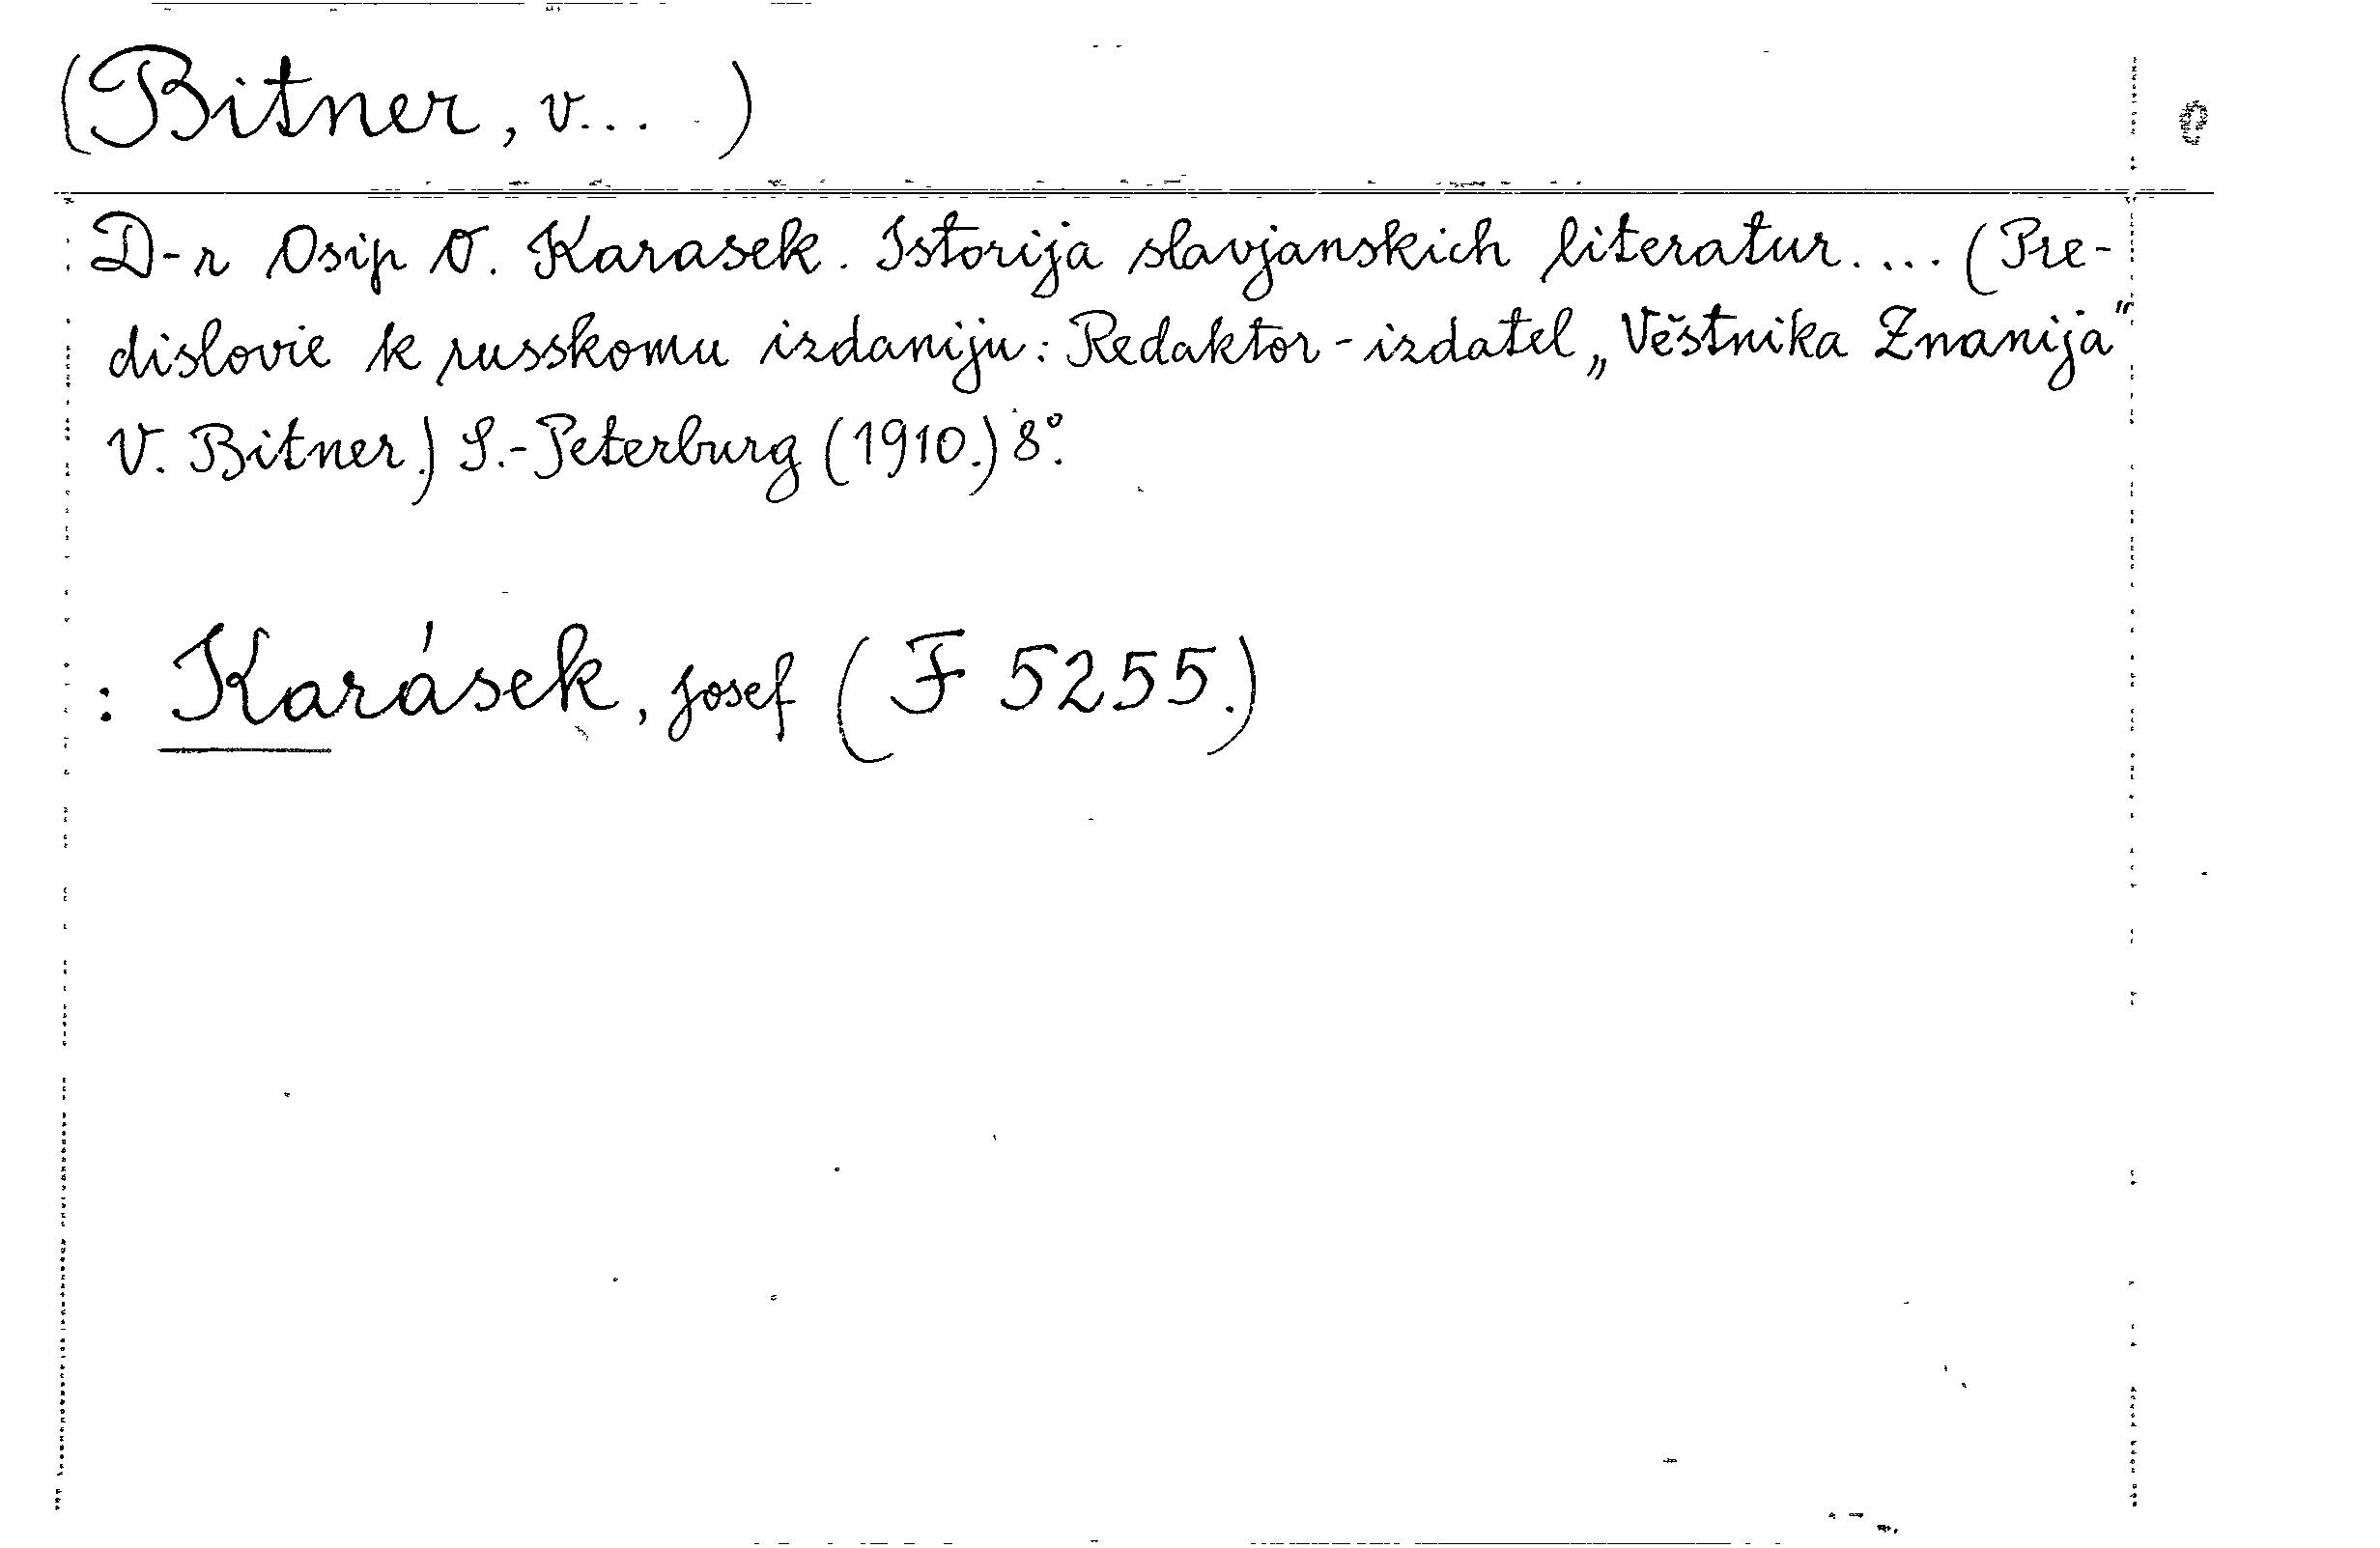 (Bitner, V... )
D-r Osip O. Karasek. Istorija slavjanskich literatur.... (Pre-
dislovie k russkomu izdaniju: Redaktor-izdatel „Věstnika Znanija"
V. Bitner.) S.-Peterburg (1910.) 8°.
: Karásek, Josef (F 5255.)